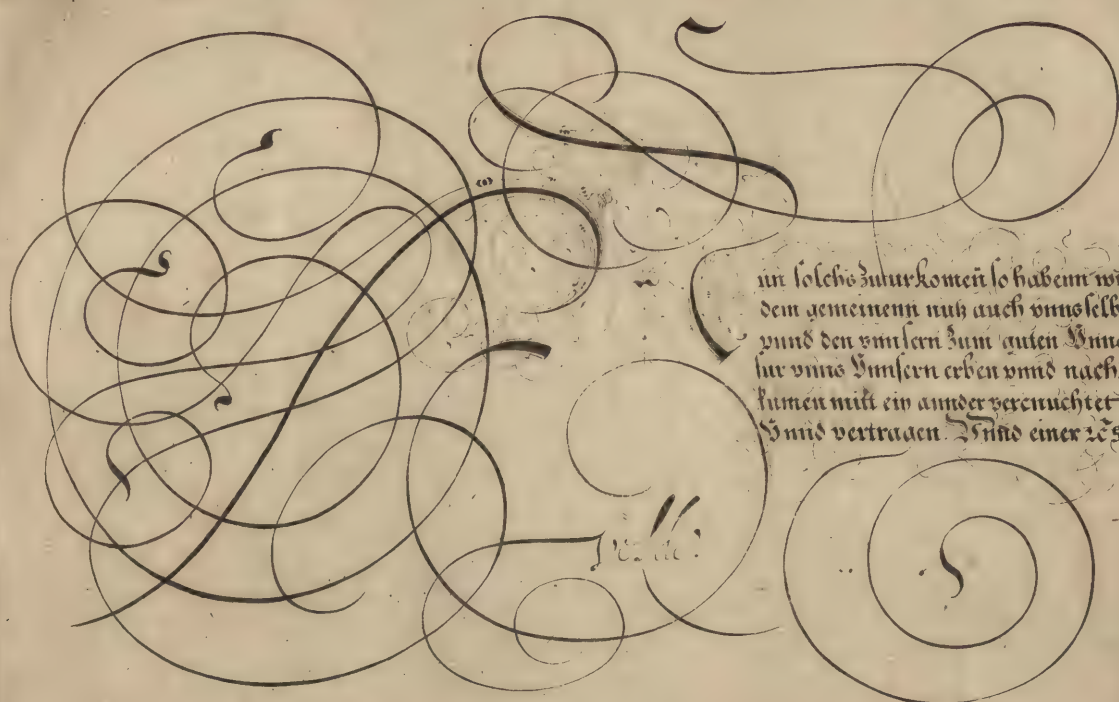 un solchs zuuurkomen̄ so habenn wi
dem gemeinenn nutz auch vnns selb
vnnd den vnnsern zum guten Vnnd
fur vnns Vnnsern erben vnnd nach
kumen mitt ein annder vereinuchtet
Vnnd vertragen. Vnnd einer